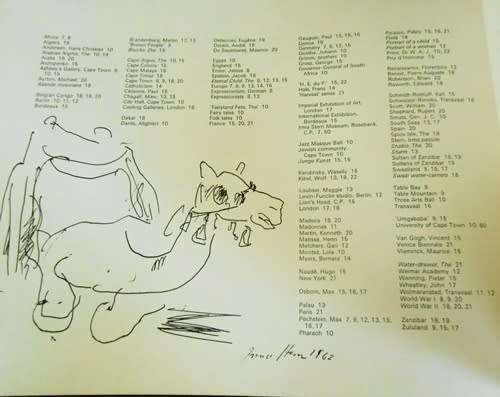 Africa 7, 8
Algiers 19
Andersen, Hans Christian 10
Arabian Nights, The 10, 14
Archipenko 15
Ashbey's Gallery, Cape Town 9,
10, 15
Belgian Congo 18, 19, 20
Berlin 10, 11, 12
Bordeaux 15
Brandenberg, Marion 12, 13
'Broken People' 9
Cape Argus, The 10, 15
Cape Colony 8
Cape Malays 18
Cape Times 18
Cape Town 8, 9, 18, 20
Catholicism 14
Cézanne, Paul 16
Chagall, Marc 12, 15
City Hall, Cape Town 10
Cooling Galleries, London 18
Dakar 18
Dante, Alighieri 10
Delacroix, Eugène 19
Derain, André 18
De Sausmarez, Maurice 20
Egypt 10
England 18
Ensor, James 9
Epstein, Jacob 18
Eternal Child, The 9, 12, 13, 15
Europe 7, 8, 9, 13, 14, 16
Expressionism, German 9
Expressionists 9, 13
'Fairyland Fete, The' 10
Fairy tales 10
Folk tales 10
France 15, 20, 21
Gauguin, Paul 15, 16
Genoa 19
Germany 7, 8, 12, 15
Goethe, Johann 10
Grimm, brothers 10
Grosz, George 15
Governor General of South
Africa 10
Hals, Frans 14
'Harvest' series 21
Imperial Exhibition of Art,
London 17
International Exhibition,
Bordeaux 15
Irma Stern Museum, Rosebank,
C.P. 7, 60
Jazz Maskque Ball 10
Jewish community,
Cape Town 10
Junge Kunst 15, 16
Kandinsky, Wassily 16
Klévé, Wolf 13, 19, 22
Laubser, Maggie 13
Levin-Funcke studio, Berlin 12
Lion's Head, C.P. 18
London 17, 18
Madeira 19, 20
Madonnas 11
Martin, Kenneth 20
Matisse, Henri 15
Melchers, Gari 12
Montez, Lola 10
Myers, Bernard 14
Naudé, Hugo 16
New York 21
Osborn, Max 15, 16, 17
Palau 13
Paris 21
Pechstein, Max 7, 9, 12, 13, 15,
16, 17
Pharaoh 10
Picasso, Pablo 15, 16, 21
Portrait of a child 15
Portrait of a woman 12
Prix d'Honneur 15
Renaissance, Florentine 12
Renoir, Pierre Auguste 16
Robertson, Brian 22
Rosworth, Edward 19
Schmidt-Rottluff, Karl 15
Schweizer-Reneke, Transvaal 16
Scott, William 20
Shephard, Rupert 20
Smuts, Gen. J. C. 10
South Seas 15, 17
Spain 20
Spice Isle, The 19
Stern, Irma passim
Studio, The 20
Sturm 13
Sultan of Zanzibar 18, 19
Sultana of Zanzibar 19
Swaziland 9, 15, 17
Swazi water-carriers 18
Table Bay 9
Table Mountain 9
Three Arts Ball 10
Transvaal 16
'Umgababa' 9, 15
University of Cape Town 10, 60
Van Gogh, Vincent 15
Venice Biennale 21
Vlaminck, Maurice 15
Water-drawer, The 21
Weimar Academy 12
Wenning, Pieter 15
Wheatley, John 17
Wolmaransstad, Transvaal 11, 12
World War I 8, 9, 20
World War II 18, 20, 21
Zanzibar 18, 19
Zululand 9, 15, 17
Irma Stern 1962